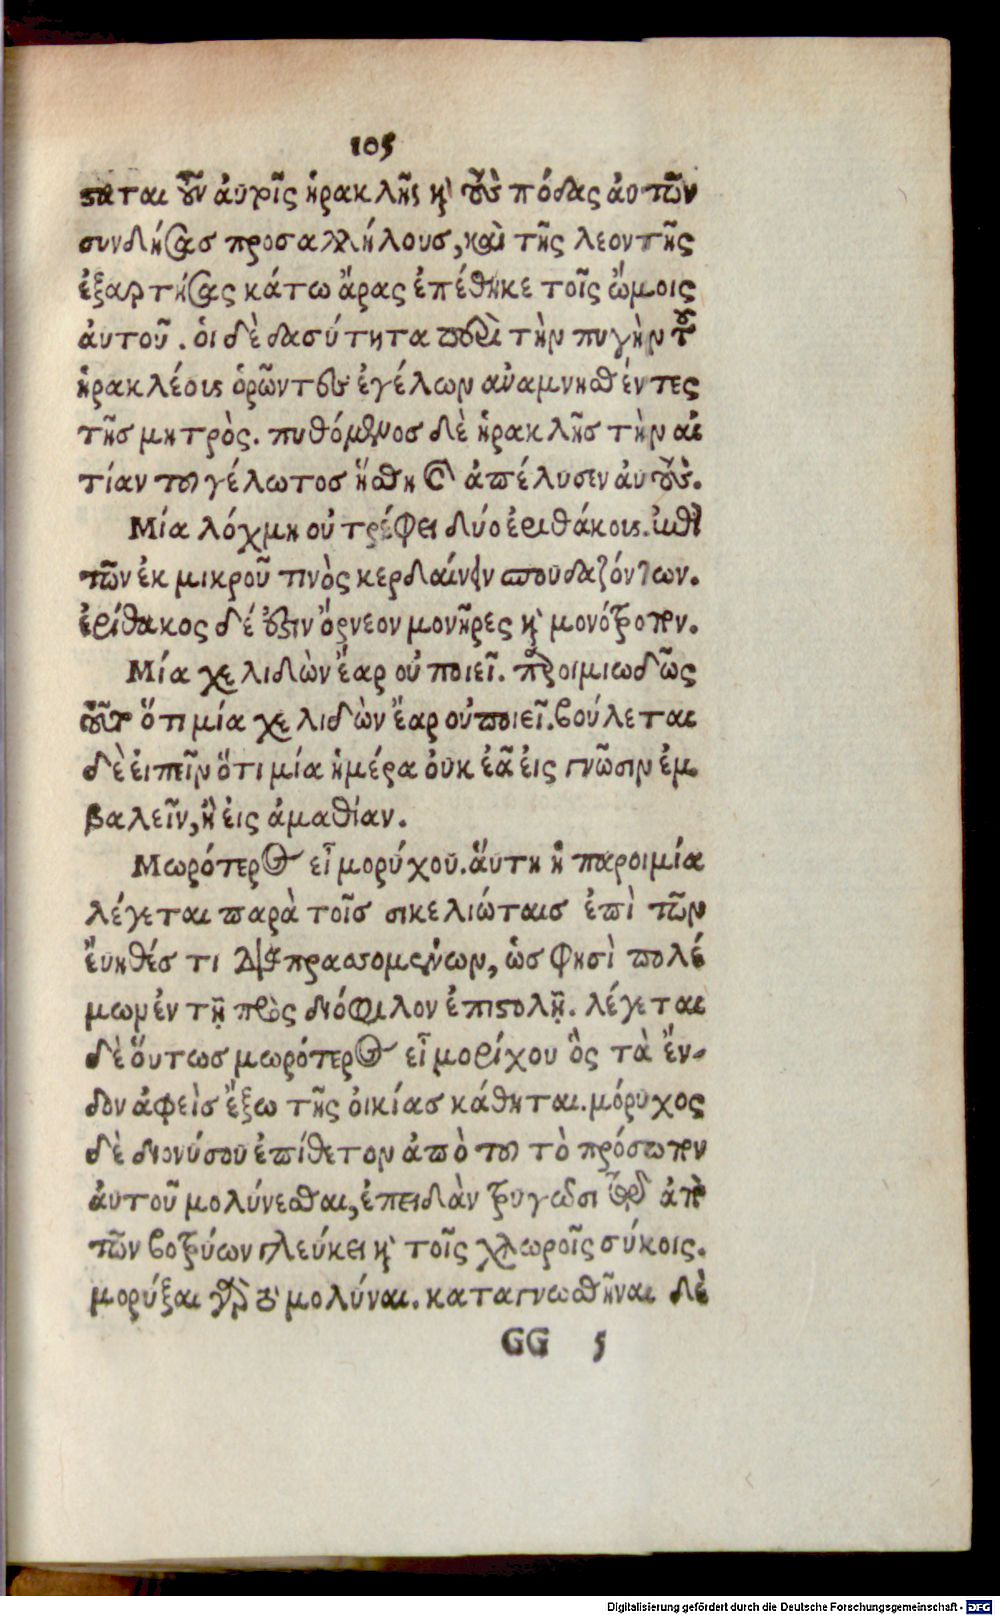 105
ϛαται οὖν αὐτοῖς ἡρακλῆς καὶ τοὺς πόδας ἀυτῶν
συνδήσας προσαλλήλους, καὶ τῆς λεοντῆς
ἐξαρτήσας κάτω ἄρας ἐπέθηκε τοῖς ὤμοις
ἀυτοῦ. ὁι δὲ δασύτητα περὶ τὴν πυγὴν τοῦ
ἡρακλέους ὁρῶντες ἐγέλων αναμνηθέντες
τῆς μητρὸς. πυθόμενος δὲ ἡρακλῆς τὴν αἰ
τίαν του γέλωτος ἥσθη καὶ ἀπέλυσεν ἀυτοὺς.
Μία λόχμη οὐ τρέφει δύο ἐριθάκους. ἐπὶ
τῶν ἐκ μικροῦ τινὸς κερδαίνειν σπουδαζόντων.
ἐρίθακος δέ ἐστιν ὄρνεον μονῆρες καὶ μονότροπον.
Μία χελιδὼν ἔαρ οὐ ποιεῖ. προοιμιωδῶς
τοῦτο ὅτι μία χελιδὼν ἔαρ οὐ ποιεῖ. βούλεται
δὲ ἐιπεῖν ὅτι μία ἡμέρα ὀυκ ἐᾶ ἐις γνῶσιν ἐμ
βαλεῖν, ἢ ἐις ἀμαθίαν.
Μωρότερος εἶ μορύχου. ἅυτη ἡ παροιμία
λέγεται παρὰ τοῖς σικελιώταις ἐπὶ τῶν
ἔυηθές τι διαπρασσομένων, ὡς φησὶ πολέ
μων ἐν τῇ πρὸς διόφιλον ἐπιστολῇ. λέγεται
δὲ ὅυτως μωρότερος εἶ μορίχου ὃς τὰ ἔν-
δον ἀφεὶς ἔξω τῆς ὀικίας κάθηται. μόρυχος
δὲ διονύσου ἐπίθετον ἀπὸ του τὸ πρόσωπον
ἀυτοῦ μολύνεσθαι, ἐπειδὰν τρυγῶσι τῷ ἀπὸ
τῶν βοτρύων γλεύκει καὶ τοῖς χλωροῖς σύκοις.
μορύξαι γὰρ τὸ μολύναι. καταγνωσθῆναι δὲ
GG 5
Digitalisierung gefördert durch die Deutsche Forschungsgemeinschaft - DFG